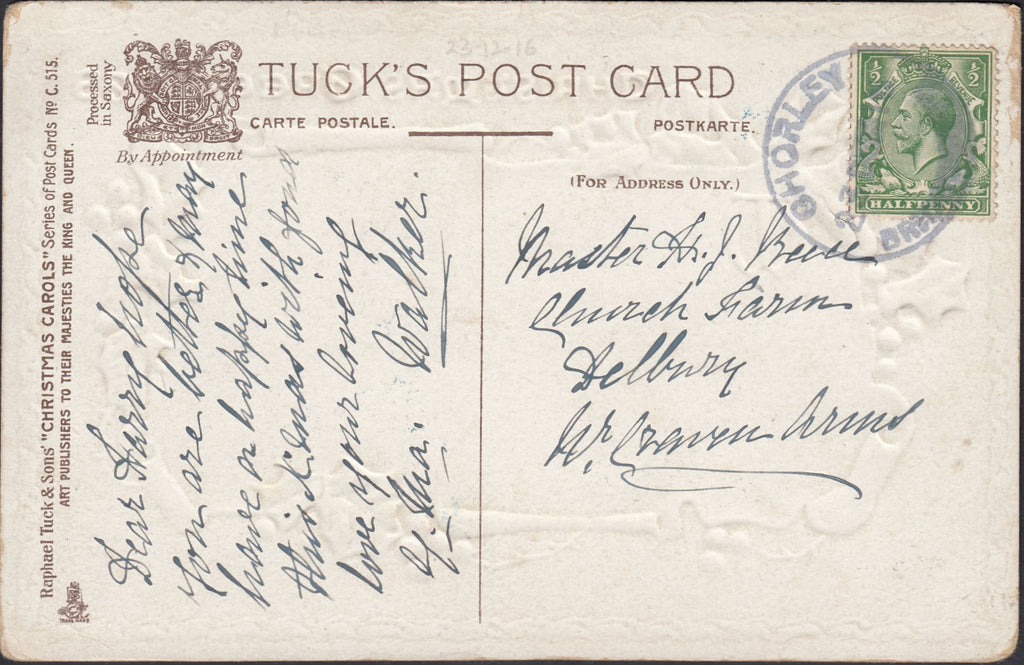 23-12-16
TUCK'S POST CARD
CARTE POSTALE.
POSTKARTE.
By Appointment
Processed
in Saxony
Raphael Tuck & Sons' "CHRISTMAS CAROLS" Series of Post Cards No C. 515.
ART PUBLISHERS TO THEIR MAJESTIES THE KING AND QUEEN.
(FOR ADDRESS ONLY.)
CHORLEY
½ ½
HALFPENNY
Dear Harry hope
you are better & may
have a happy time
this Xmas with fond
love your loving
Walker.
Master H. J.
Church Farm
Delbury
Nr. Craven Arms